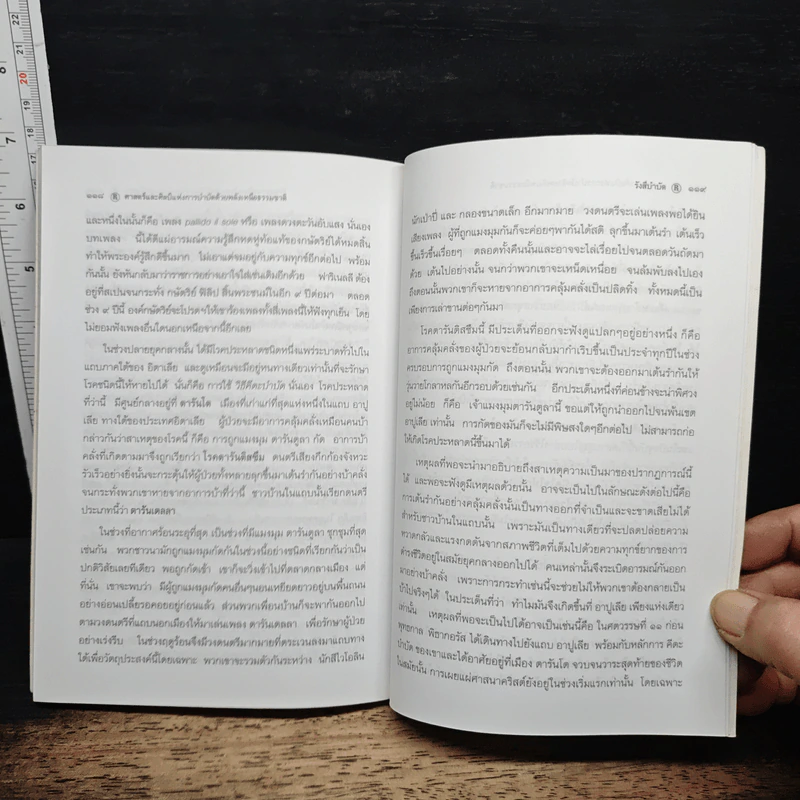 ๑๑๘ ศาสตร์และศิลป์แห่งการบำบัดด้วยพลังเหนือธรรมชาติ
และหนึ่งในนั้นก็คือ เพลง pallido il sole หรือ เพลงดวงตะวันอับแสง นั่นเอง
บทเพลง นี้ได้ดีแม่อารมณ์ความรู้สึกหดหู่ท้อแท้ของกษัตริย์ได้หมดสิ้น
ทำให้พระองค์รู้สึกดีขึ้นมาก ไม่เอาแต่จมอยู่กับความทุกข์อีกต่อไป พร้อม
กันนั้น ยังหันกลับมาว่าราชการอย่างเอาใจใส่เช่นเดิมอีกด้วย ฟาริเนลลี ต้อง
อยู่ที่สเปนจนกระทั่ง กษัตริย์ ฟิลิป สิ้นพระชนม์ในอีก ๙ ปีต่อมา ตลอด
ช่วง ๙ ปีนี้ องค์กษัตริย์จะโปรดฯให้เขาร้องเพลงทั้งสี่เพลงนี้ให้ฟังทุกเย็น โดย
ไม่ยอมฟังเพลงอื่นใดนอกเหนือจากนี้อีกเลย
ในช่วงปลายยุคกลางนั้น ได้มีโรคประหลาดชนิดหนึ่งแพร่ระบาดทั่วไปใน
แถบภาคใต้ของ อิตาเลีย และดูเหมือนจะมีอยู่หนทางเดียวเท่านั้นที่จะรักษา
โรคชนิดนี้ให้หายไปได้ นั่นก็คือ การใช้ วิธีคีตะบำบัด นั่นเอง โรคประหลาด
ที่ว่านี้ มีศูนย์กลางอยู่ที่ ตารันโต เมืองที่เก่าแก่ที่สุดแห่งหนึ่งในแถบ อาปู
เลีย ทางใต้ของประเทศอิตาเลีย ผู้ป่วยจะมีอาการคลุ้มคลั่งเหมือนคนบ้า
กล่าวกันว่าสาเหตุของโรคนี้ ก็คือ การถูกแมงมุม ตารันตูลา กัด อาการบ้า
คลั่งที่เกิดตามมาจึงถูกเรียกว่า โรคตารันติสซึม ดนตรีเสียงกึกก้องจังหวะ
รัวเร็วอย่างยิ่งนั้นจะกระตุ้นให้ผู้ป่วยทั้งหลายลุกขึ้นมาเต้นรำกันอย่างบ้าคลั่ง
จนกระทั่งพวกเขาหายจากอาการบ้าที่ว่านี้ ชาวบ้านในแถบนั้นเรียกดนตรี
ประเภทนี้ว่า ตารันเตลลา
ในช่วงที่อากาศร้อนระอุที่สุด เป็นช่วงที่มีแมงมุม ตารันตูลา ชุกชุมที่สุด
เช่นกัน พวกชาวนามักถูกแมงมุมกัดกันในช่วงนี้อย่างชนิดที่เรียกกันว่าเป็น
ปกติวิสัยเลยทีเดียว พอถูกกัดเข้า เขาก็จะวิ่งเข้าไปที่ตลาดกลางเมือง แต่
ที่นั่น เขาจะพบว่า มีผู้ถูกแมงมุมกัดคนอื่นๆนอนเหยียดยาวอยู่บนพื้นถนน
อย่างอ่อนเปลี้ยรอคอยอยู่ก่อนแล้ว ส่วนพวกเพื่อนบ้านก็จะพากันออกไป
ตามวงดนตรีที่แถบนอกเมืองให้มาเล่นเพลง ตารันเตลลา เพื่อรักษาผู้ป่วย
อย่างเร่งรีบ ในช่วงฤดูร้อนจึงมีวงดนตรีมากมายที่ตระเวนลงมาแถบทาง
ใต้เพื่อวัตถุประสงค์นี้โดยเฉพาะ พวกเขาจะรวมตัวกันระหว่าง นักสีไวโอลิน
รังสีบำบัด ๑๑๙
นักเป่าปี่ และ กลองขนาดเล็ก อีกมากมาย วงดนตรีจะเล่นเพลงพอได้ยิน
เสียงเพลง ผู้ที่ถูกแมงมุมกันก็จะค่อยๆพากันได้สติ ลุกขึ้นมาเต้นรำ เต้นเร็ว
ขึ้นเร็วขึ้นเรื่อยๆ ตลอดทั้งคืนนั้นและอาจจะไล่เรื่อยไปจนตลอดวันถัดมา
ด้วย เต้นไปอย่างนั้น จนกว่าพวกเขาจะเหน็ดเหนื่อย จนล้มพับลงไปเอง
ถึงตอนนั้นพวกเขาก็จะหายจากอาการคลุ้มคลั่งเป็นปลิดทิ้ง ทั้งหมดนี้เป็น
เพียงการเล่าขานต่อๆกันมา
โรคตารันติสซึมนี้ มีประเด็นที่ออกจะฟังดูแปลกๆอยู่อย่างหนึ่ง ก็คือ
อาการคลุ้มคลั่งของผู้ป่วยจะย้อนกลับมากำเริบขึ้นเป็นประจำทุกปีในช่วง
ครบรอบการถูกแมงมุมกัด ถึงตอนนั้น พวกเขาจะต้องออกมาเต้นรำกันให้
วุ่นวายโกลาหลกันอีกรอบด้วยเช่นกัน อีกประเด็นหนึ่งที่ค่อนข้างจะน่าพิศวง
อยู่ไม่น้อย ก็คือ เจ้าแมงมุมตารันตูลานี้ ขอแต่ให้ถูกนำออกไปจนพ้นเขต
อาปูเลีย เท่านั้น การกัดของมันก็จะไม่มีพิษสงใดๆอีกต่อไป ไม่สามารถก่อ
ให้เกิดโรคประหลาดนี้ขึ้นมาได้
เหตุผลที่พอจะนำมาอธิบายถึงสาเหตุความเป็นมาของปรากฏการณ์นี้
ได้ และพอจะฟังดูมีเหตุผลด้วยนั้น อาจจะเป็นไปในลักษณะดังต่อไปนี้คือ
การเต้นรำกันอย่างคลุ้มคลั่งนั้นเป็นทางออกที่จำเป็นและจะขาดเสียไม่ได้
สำหรับชาวบ้านในแถบนั้น เพราะมันเป็นทางเดียวที่จะปลดปล่อยความ
หวาดกลัวและแรงกดดันจากสภาพชีวิตที่เต็มไปด้วยความทุกข์ยากของการ
ดำรงชีวิตอยู่ในสมัยยุคกลางออกไปได้ คนเหล่านั้นจึงระเบิดอารมณ์กันออก
มาอย่างบ้าคลั่ง เพราะการกระทำเช่นนี้จะช่วยไม่ให้พวกเขาต้องกลายเป็น
บ้าไปจริงๆได้ ในประเด็นที่ว่า ทำไมมันจึงเกิดขึ้นที่ อาปูเลีย เพียงแห่งเดียว
เท่านั้น เหตุผลที่พอจะเป็นไปได้อาจเป็นเช่นนี้คือ ในศตวรรษที่ ๑๑ ก่อน
พุทธกาล พิธากอรัส ได้เดินทางไปยังแถบ อาปูเลีย พร้อมกับหลักการ คีตะ
บำบัด ของเขาและได้อาศัยอยู่ที่เมือง ตารันโต จวบจนวาระสุดท้ายของชีวิต
ในสมัยนั้น การเผยแผ่ศาสนาคริสต์ยังอยู่ในช่วงเริ่มแรกเท่านั้น โดยเฉพาะ